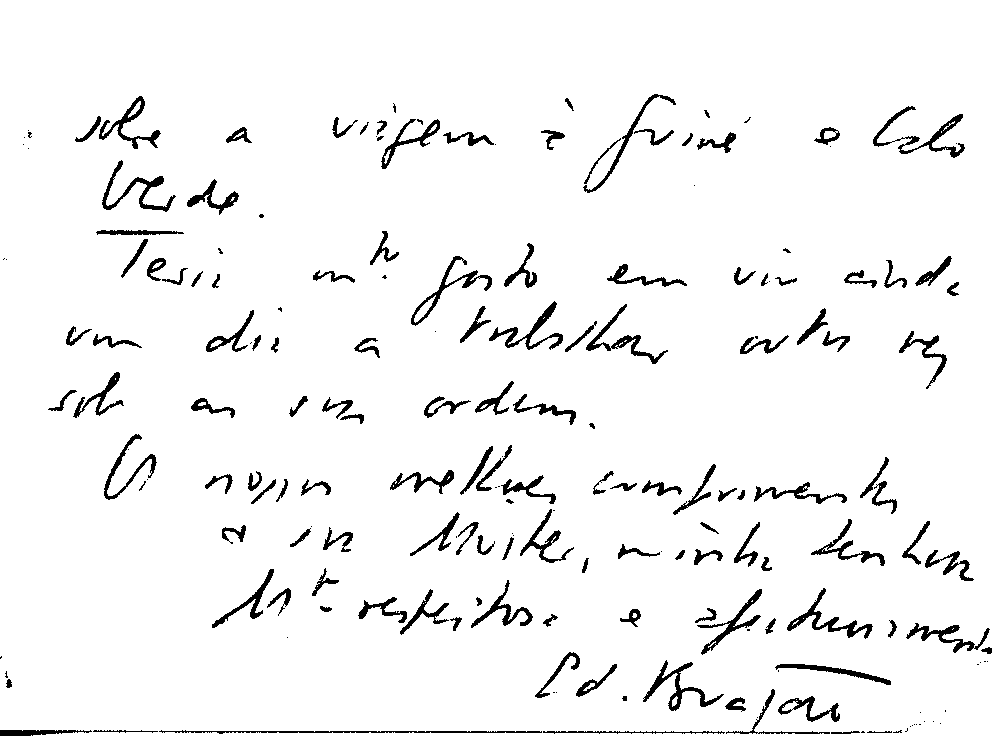 sobre a viagem à Guiné e Cabo
Verde.
Teria mto. gosto em vir ainda
um dia a trabalhar outra vez
sob as suas ordens.
Os nossos melhores cumprimentos
a sua Mulher, minha Senhora
Mto. respeitosa e afectuosamente
Ed. Brazão